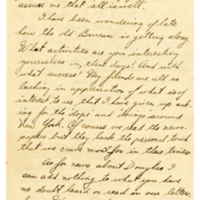 assure us that all is well.
I have been wondering of late
how the old Bureau is getting along.
What activities are you interesting
yourselves in, these days? And with
what success? My friends are all so
lacking in appreciation of what is of
interest to us that I have given up ask-
ing for the dope and doings around
New York. Of course we had the news-
papers but they lack the personal touch
that we crave most for in these times.
As for news about Douglas I
can add nothing to what you have
no doubt heard or read in our letters,